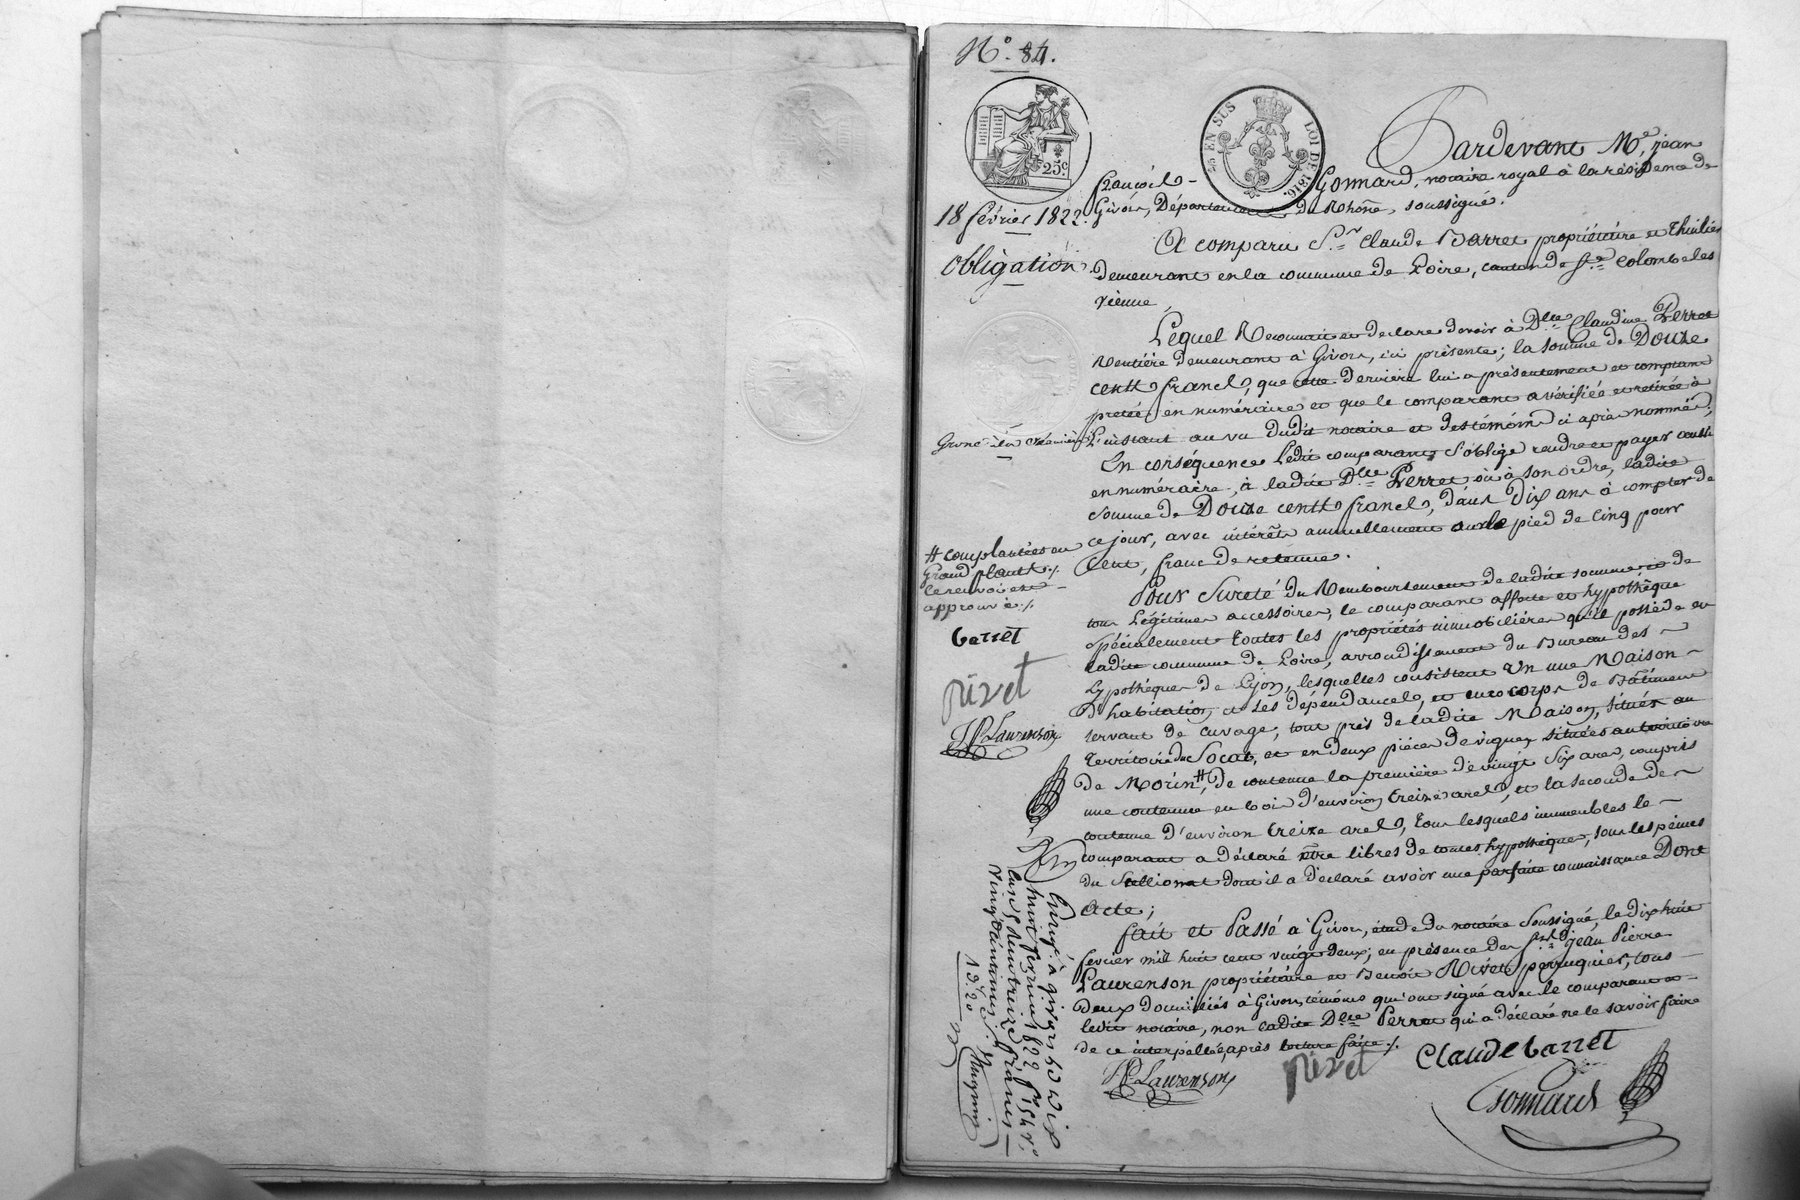 N.° 84.
25c
25 EN SUS LOI DE 1816.
18 février 1822.
Obligation
Pardevant M.e jean
françois Gonnard, notaire royal à la résidence de
Givors, Département du Rhône, soussigné.
A comparu S.r Claude Barret propriétaire et thuilier
demeurant en la commune de Loire, canton de S.te Colombe les
vienne
Lequel Reconnait et declare devoir à D.lle Claudine Perret
Rentière demeurant à Givors, ici présente; la somme de Douze
cents francs, que cette dernière lui a présentement et comptant
pretée en numéraire et que le comparant a vérifiée et retirée à
L'instant au vu dudit notaire et des témoins ci après nommés;
Grosse à la créancière
En conséquence Ledit comparant s'oblige rendre et payer aussi
en numéraire, à ladite D.lle Perret ou à son ordre, ladite
somme de Douze cents francs, dans dix ans à compter de
ce jour, avec intérêts annuellement sur le pied de cinq pour
cent, franc de retenue.
# complantées en
Grand plants ./.
le renvoi est
approuvé ./.
Barret
rivet
JP Laurenson
Pour Sureté du Remboursement de ladite somme et de
tous Légitimes accessoires, le comparant affecte et hypothèque
spécialement toutes les propriétés immobilières qu'il possède en
ladite commune de Loire, arrondissement du Bureau des
hypothèques de Lyon, lesquelles consistent En une Maison
D'habitation et ses dépendances, et en un corps de Bâtiment
servant de cuvage, tout près de ladite Maison, situés au
Territoire du Socat, et en deux pièces de vignes situées au territoire
de Morin #, de contenue la première de vingt six ares, compris
une contenue en bois d'environ treize ares, et la seconde de
contenue d'environ treize ares, tous lesquels immeubles le
comparant a déclaré être libres de toutes hypothèques, sous les peines
du stellionat dont il a déclaré avoir une parfaite connaissance Dont
Acte;
fait et Passé à Givors, étude du notaire soussigné, le dix huit
fevrier mil huit cent vingt deux; en présence des S.rs jean Pierre
Laurenson propriétaire et Benoit Rivet perruquier, tous
deux domiciliés à Givors, témoins qui ont signé avec le comparant et
ledit notaire, non ladite D.lle Perret qui a déclaré ne le savoir faire
de ce interpellée, après lecture faite ./.
JP Laurenson
rivet
Claude barret
Gonnard
Enreg. à givors le dix
huit février 1822 f.° 154 v.°
treize francs
vingt centimes